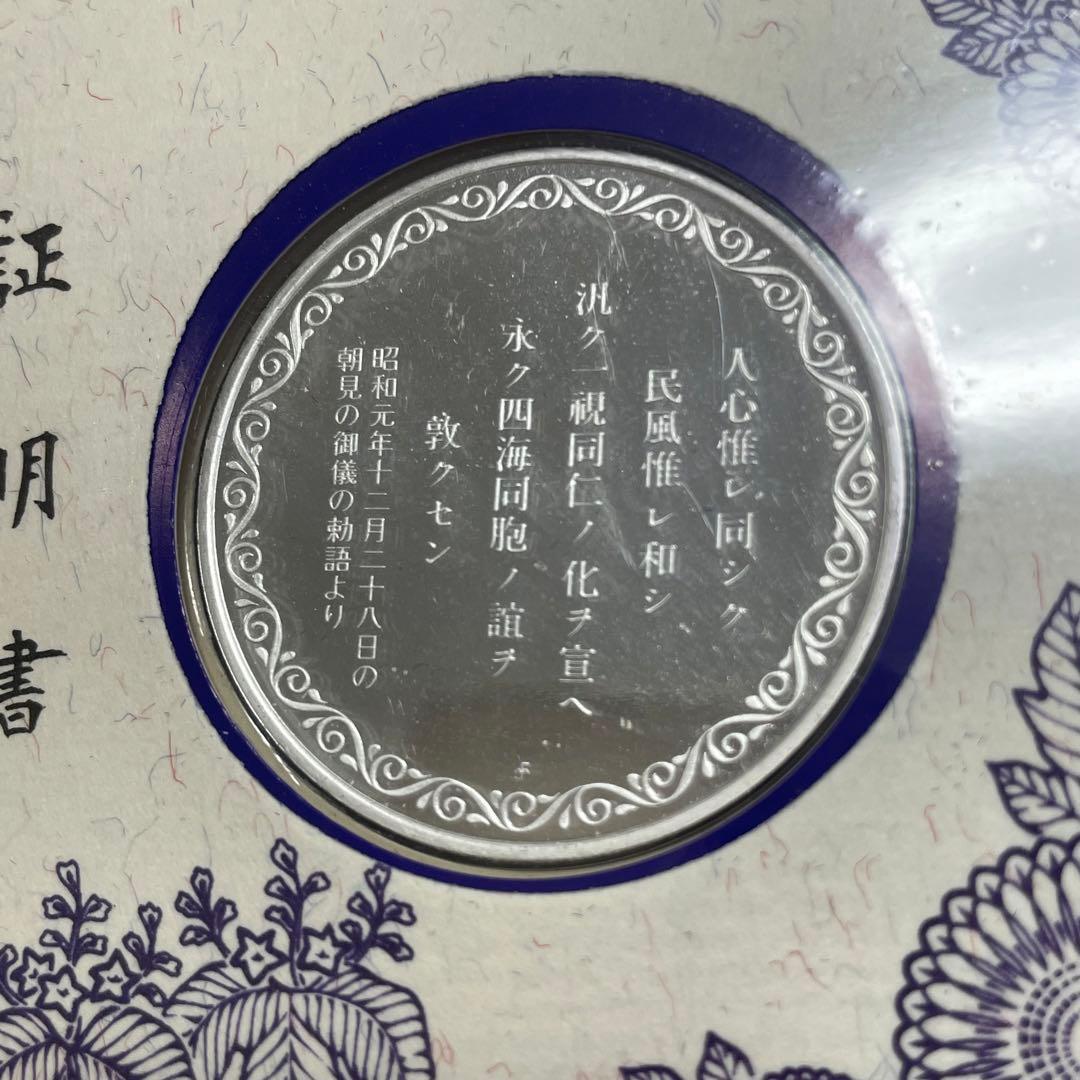 人心惟レ同シク
民風惟レ和シ
汎ク一視同仁ノ化ヲ宣ヘ
永ク四海同胞ノ誼ヲ
敦クセン
昭和元年十二月二十八日の
朝見の御儀の勅語より
証明書